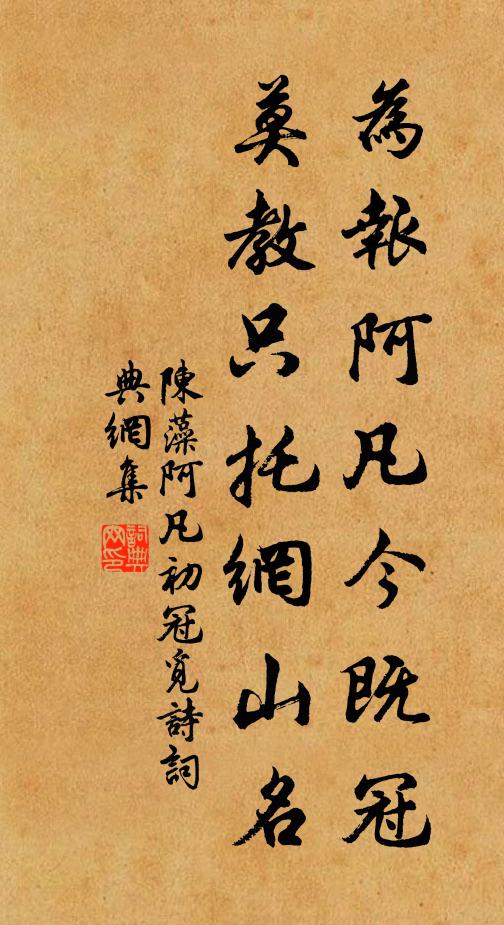 為報阿凡今既冠
莫教只托網山名
陳藻阿凡初冠覓詩詞
典網集
詞典
网印